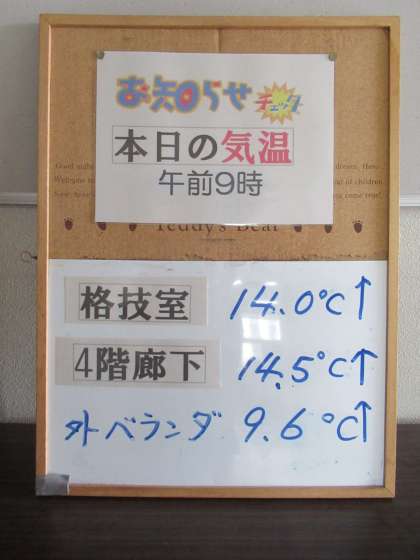 お知らせ チェック
本日の気温
午前9時
Teddy's Bear
格技室 14.0℃↑
4階廊下 14.5℃↑
外ベランダ 9.6℃↑